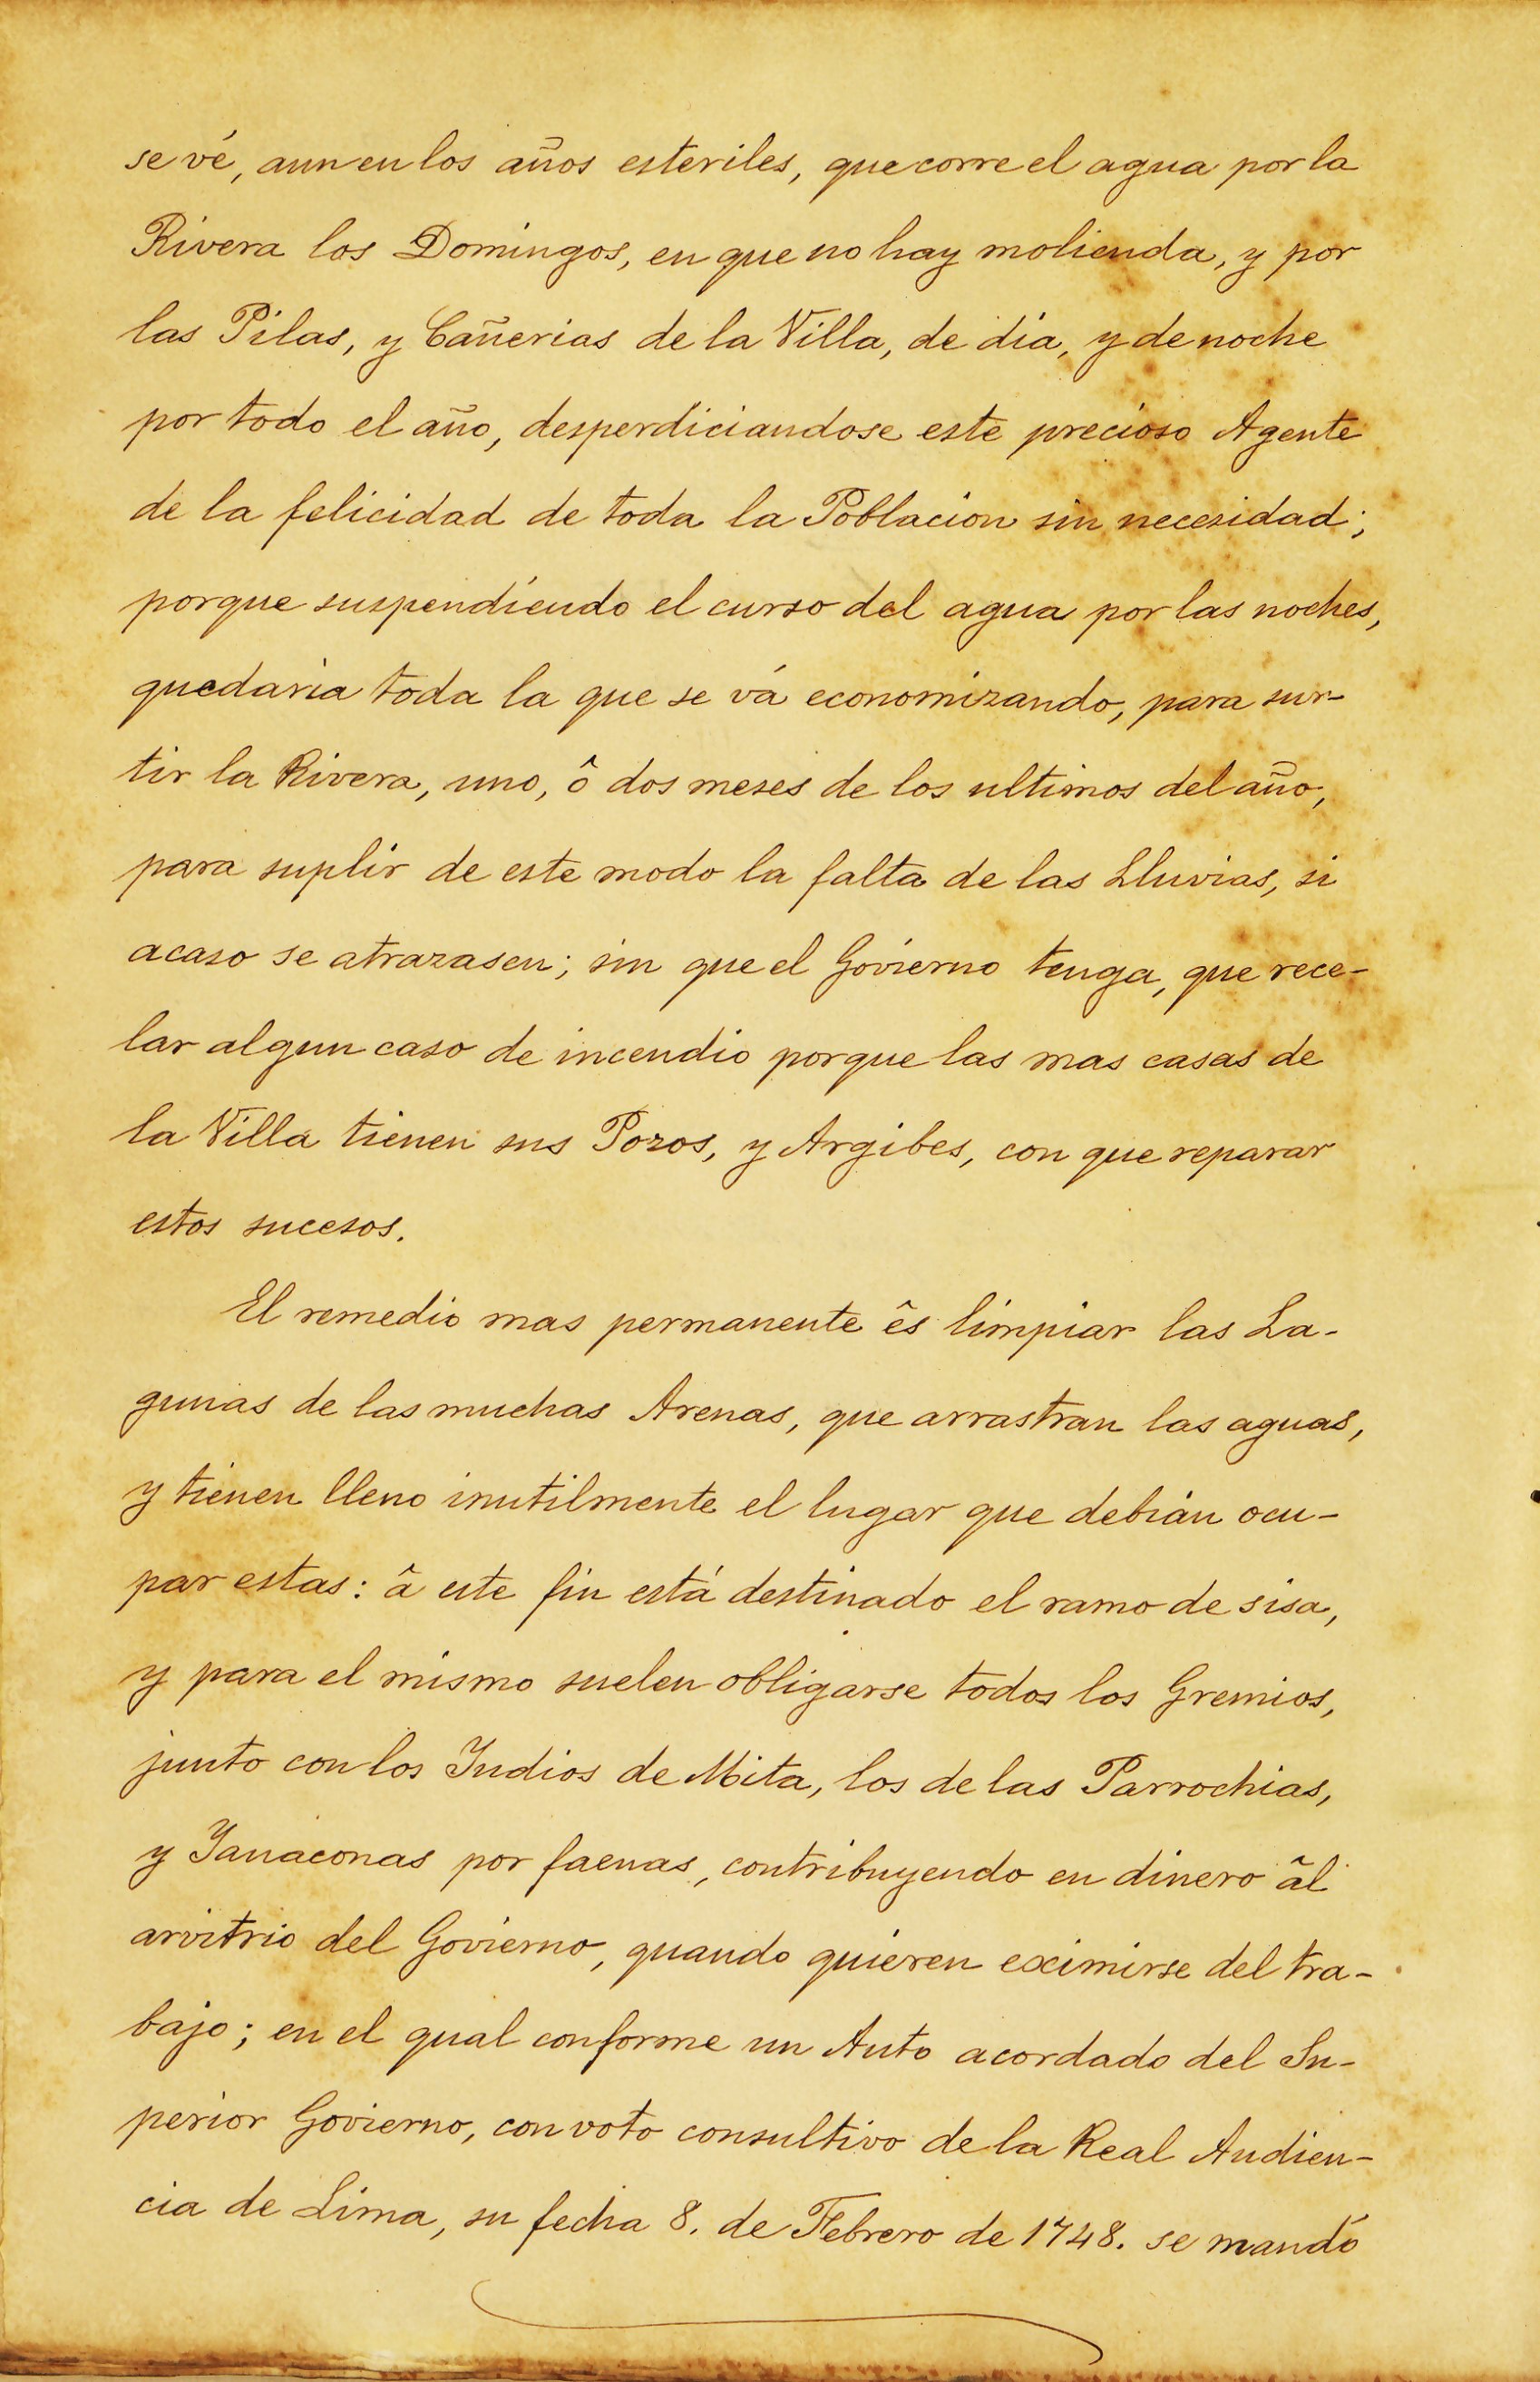 se vé, aun en los años esteriles, que corre el agua por la
Rivera los Domingos, en que no hay molienda, y por
las Pilas, y Cañerias de la Villa, de dia, y de noche
por todo el año, desperdiciandose este precioso Agente
de la felicidad de toda la Poblacion sin necesidad;
porque suspendiendo el curso del agua por las noches,
quedaria toda la que se vá economizando, para sur-
tir la Rivera, uno, ô dos meses de los ultimos del año,
para suplir de este modo la falta de las Lluvias, si
acaso se atrazasen; sin que el Govierno tenga, que rece-
lar algun caso de incendio porque las mas casas de
la Villa tienen sus Pozos, y Argibes, con que reparar
estos sucesos.
El remedio mas permanente ês limpiar las La-
gunas de las muchas Arenas, que arrastran las aguas,
y tienen lleno inutilmente el lugar que debián ocu-
par estas: â este fin está destinado el ramo de sisa,
y para el mismo suelen obligarse todos los Gremios,
junto con los Yndios de Mita, los de las Parrochias,
y Yanaconas por faenas, contribuyendo en dinero âl
arvitrio del Govierno, quando quieren eximirse del tra-
bajo; en el qual conforme un Auto acordado del Su-
perior Govierno, con voto consultivo de la Real Audien-
cia de Lima, su fecha 8. de Febrero de 1748. se mandó